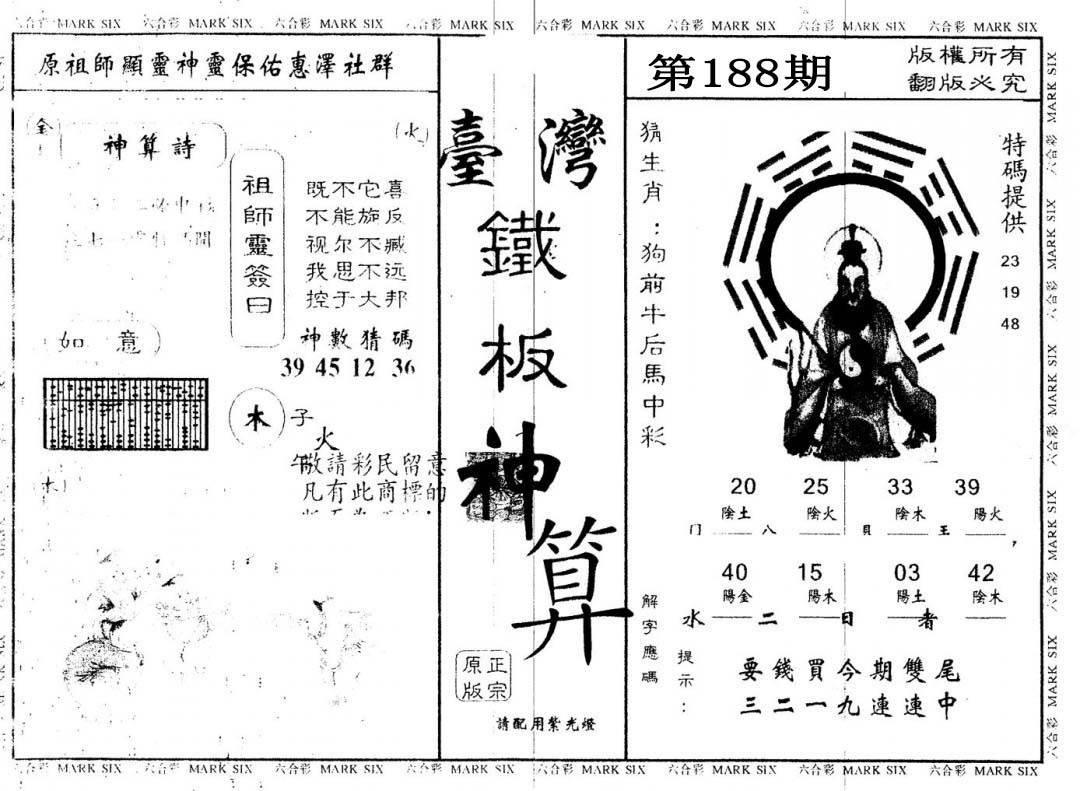 六合彩 MARK SIX 六合彩 MARK SIX 六合彩 MARK SIX 六合彩 MARK SIX 六合彩 MARK SIX 六合彩 MARK SIX 六合彩 MARK SIX 六合彩 MARK SIX
原祖師顯靈神靈保佑惠澤社群
金
神算詩
(火)
祖師靈簽曰
既不它喜
不能旋反
视尔不臧
我思不远
控于大邦
神數猜碼
39 45 12 36
如意
木
子
火
午
敬請彩民留意
凡有此商標的
木
臺灣
鐵
板
神
算
正宗
原版
請配用紫光燈
第188期
版權所有
翻版必究
猜生肖:狗前牛后馬中彩
特碼提供
23
19
48
20 25 33 39
陰土 陰火 陰木 陽火
门 八 貝 王 ,
40 15 03 42
陽金 陽木 陽土 陰木
水 二 日 者
解字應碼
提示:
要錢買今期雙尾
三二一九連連中
六合彩 MARK SIX 六合彩 MARK SIX 六合彩 MARK SIX 六合彩 MARK SIX 六合彩 MARK SIX
六合彩 MARK SIX 六合彩 MARK SIX 六合彩 MARK SIX 六合彩 MARK SIX 六合彩 MARK SIX 六合彩 MARK SIX 六合彩 MARK SIX 六合彩 MARK SIX